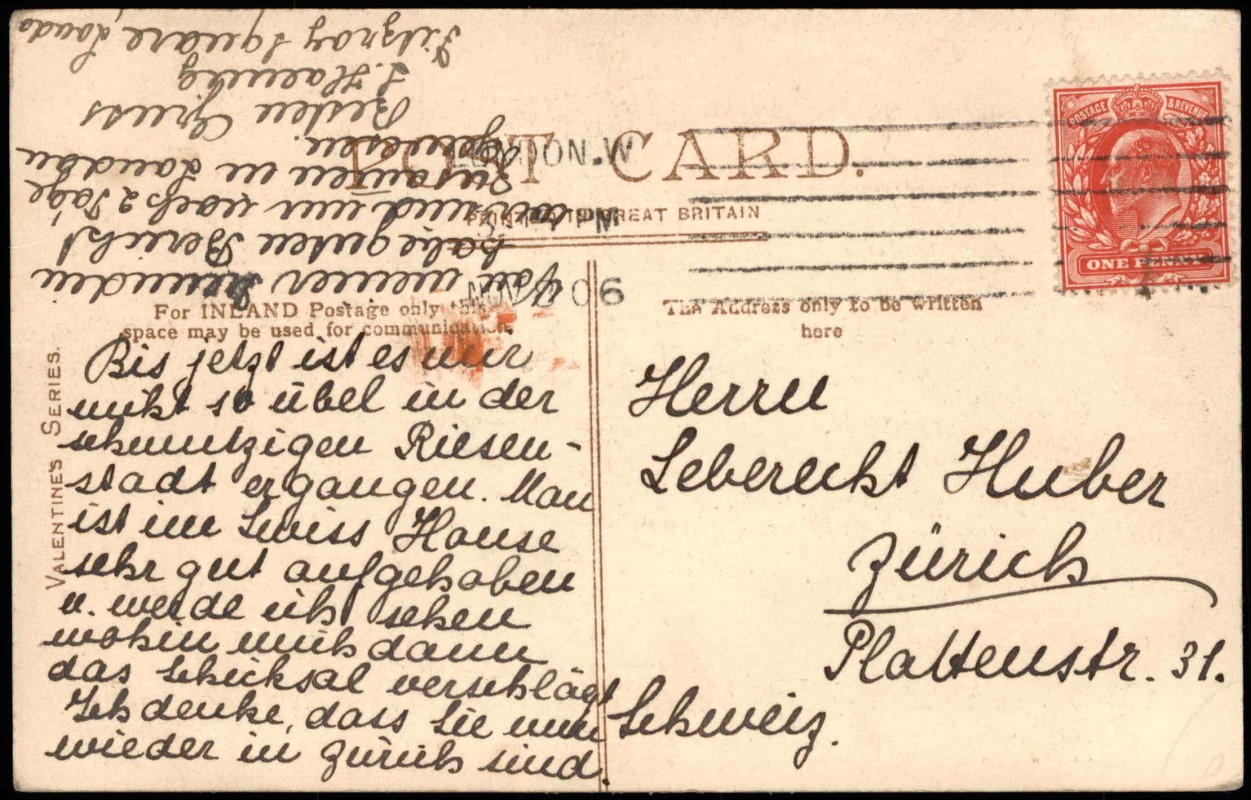 POST CARD.
PRINTED IN GREAT BRITAIN
LONDON.W
PM
NOV 06
POSTAGE & REVENUE
ONE PENNY
For INLAND Postage only this
space may be used for communication
The Address only to be written
here
VALENTINE'S SERIES.
Bis jetzt ist es mir
nicht so übel in der
schmutzigen Riesen-
stadt ergangen. Man
ist im Swiss House
sehr gut aufgehoben
u. werde ich sehen
wohin mich dann
das Schicksal verschlägt
Ich denke, dass Sie nun
wieder in Zürich sind.
Von meiner Freundin
habe guten Bericht
und nur noch 2 Tage
zusamen in London
gewesen.
Besten Gruss
Fitzroy Square
Herrn
Leberecht Huber
Zürich
Plattenstr. 31.
Schweiz.